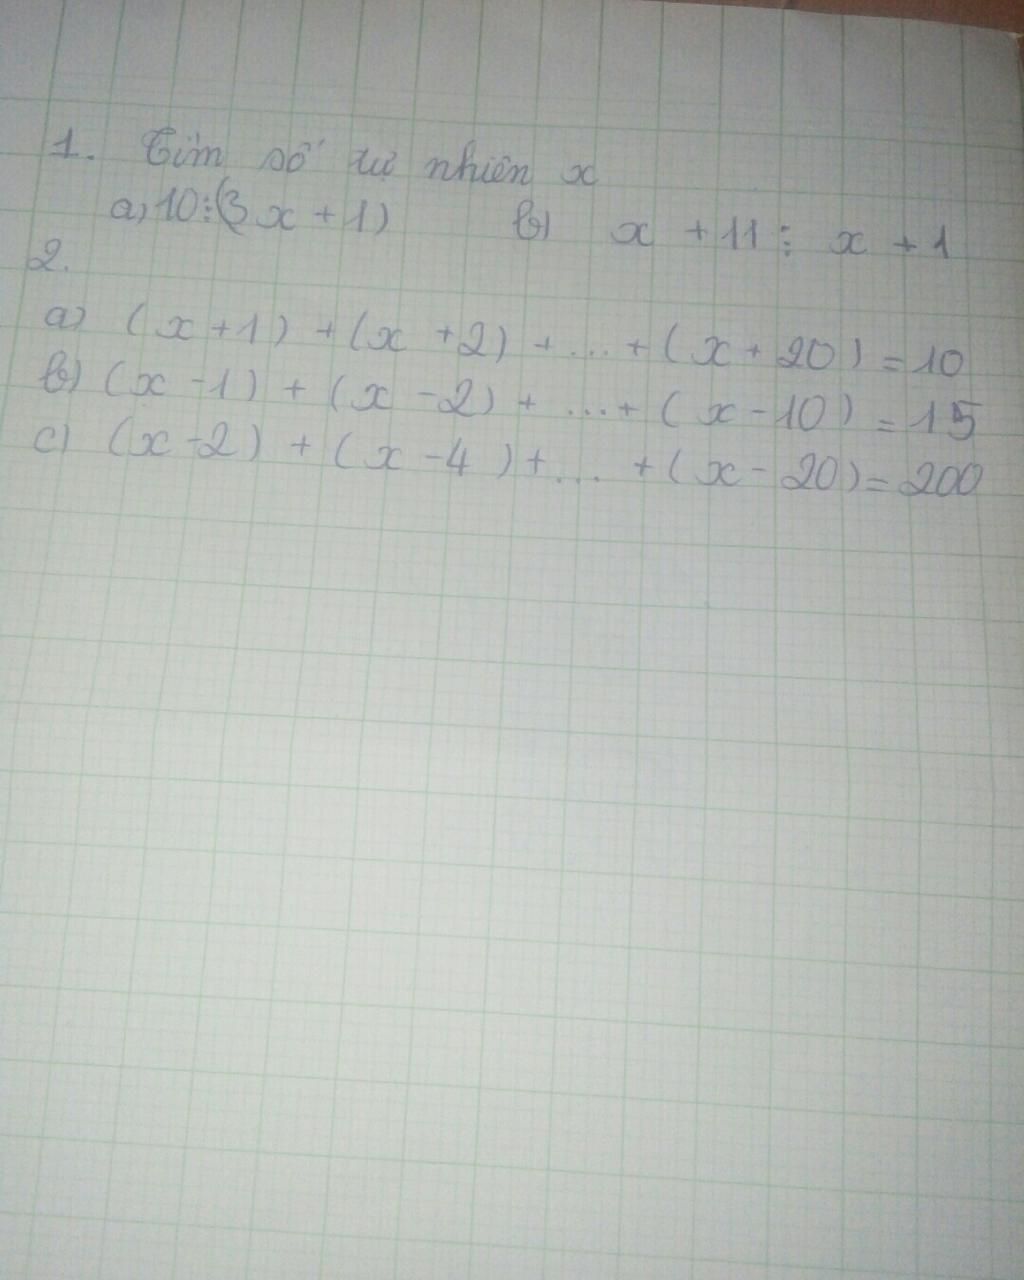 1. Tìm số tự nhiên x
a) 10⋮(3x + 1) b) x + 11 ⋮ x + 1
2.
a) (x + 1) + (x + 2) + ... + (x + 20) = 10
b) (x - 1) + (x - 2) + ... + (x - 10) = 15
c) (x - 2) + (x - 4) + ... + (x - 20) = 200